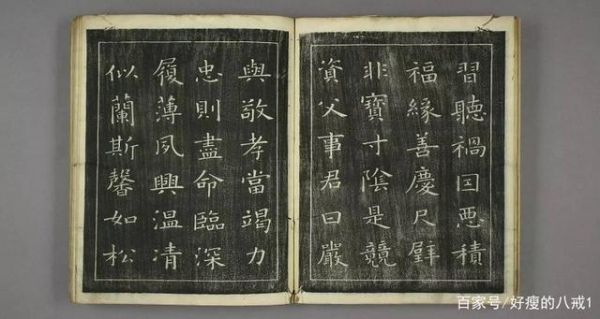 習聽禍囙惡積
福緣善慶尺璧
非寶寸陰是競
資父事君曰嚴
與敬孝當竭力
忠則盡命臨深
履薄夙興温凊
似蘭斯馨如松
百家号/好瘦的八戒1